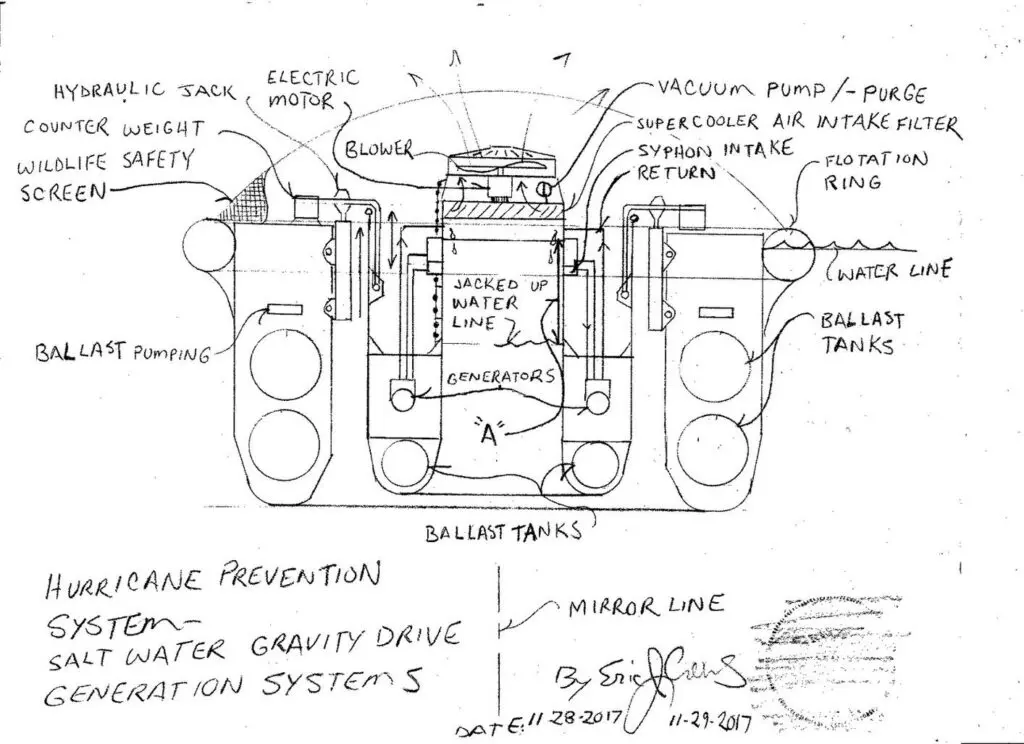 HYDRAULIC JACK
ELECTRIC
MOTOR
COUNTER WEIGHT
WILDLIFE SAFETY
SCREEN
BLOWER
VACUUM PUMP/-PURGE
SUPERCOOLER AIR INTAKE FILTER
SYPHON INTAKE
RETURN
FLOTATION
RING
WATER LINE
JACKED UP
WATER
LINE
BALLAST PUMPING
BALLAST
TANKS
GENERATORS
"A"
BALLAST TANKS
HURRICANE PREVENTION
SYSTEM-
SALT WATER GRAVITY DRIVE
GENERATION SYSTEMS
MIRROR LINE
By Eric J
DATE: 11-28-2017 11-29-2017